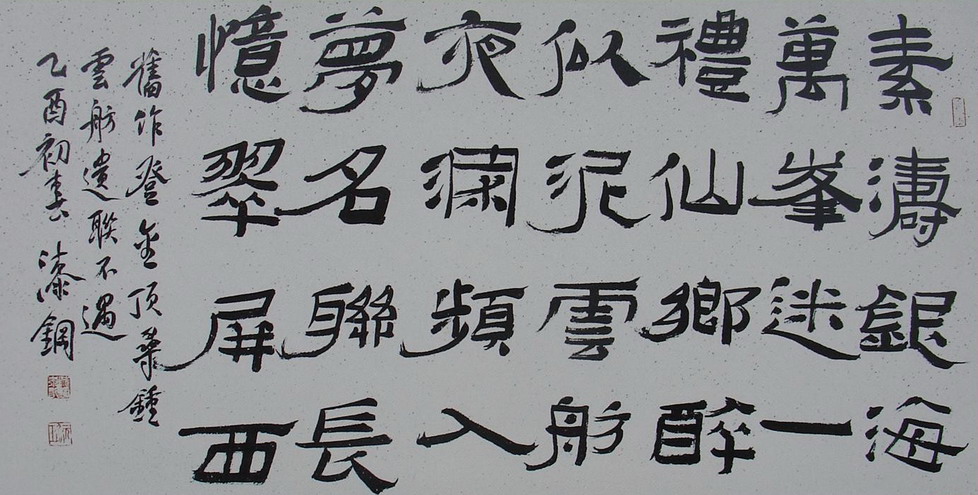 素濤銀海
萬峯迷一
禮仙鄉醉
似泥雲舫
夜瀾頻入
夢名聯長
憶翠屏西
舊作登金頂鍾
雲舫遺聯不遇
乙酉初春漆鋼